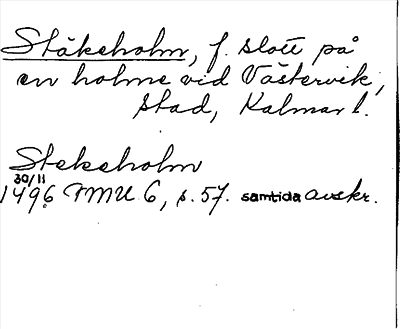 Stäkeholm, f. slott på
en holme vid Västervik,
stad, Kalmar l.
Stekeholm
30/11
1496 NMU 6, s. 57. samtida avskr.